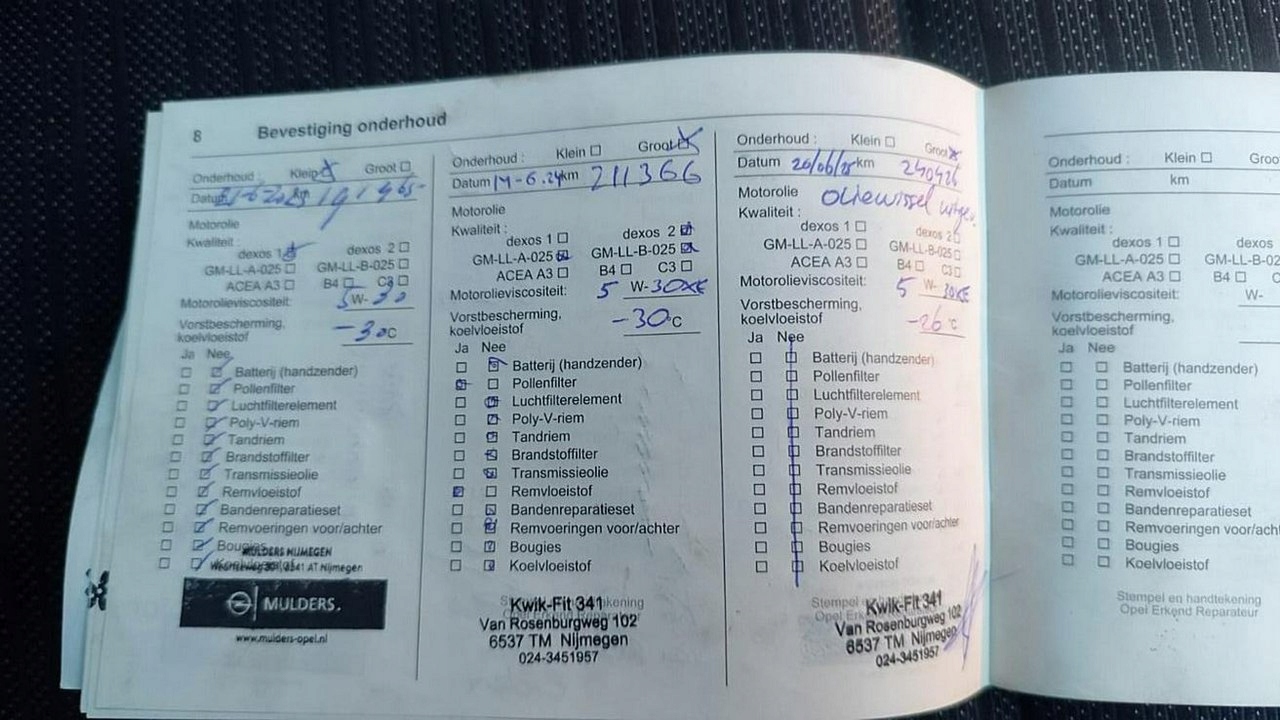 8 Bevestiging onderhoud
Onderhoud : Klein Groot
Datum km
Motorolie
Kwaliteit :
dexos 1 dexos 2
GM-LL-A-025 GM-LL-B-025
ACEA A3 B4 C3
Motorolieviscositeit: 5 W-30
Vorstbescherming, koelvloeistof -30°C
Ja Nee
Batterij (handzender)
Pollenfilter
Luchtfilterelement
Poly-V-riem
Tandriem
Brandstoffilter
Transmissieolie
Remvloeistof
Bandenreparatieset
Remvoeringen voor/achter
Bougies
MULDERS NIJMEGEN
6541 AT Nijmegen
MULDERS.
www.mulders-opel.nl
Onderhoud : Klein Groot
Datum 14-6-24 km 211366
Motorolie
Kwaliteit :
dexos 1 dexos 2
GM-LL-A-025 GM-LL-B-025
ACEA A3 B4 C3
Motorolieviscositeit: 5 W-30
Vorstbescherming,
koelvloeistof -30°C
Ja Nee
Batterij (handzender)
Pollenfilter
Luchtfilterelement
Poly-V-riem
Tandriem
Brandstoffilter
Transmissieolie
Remvloeistof
Bandenreparatieset
Remvoeringen voor/achter
Bougies
Koelvloeistof
Kwik-Fit 341
Van Rosenburgweg 102
6537 TM Nijmegen
024-3451957
Onderhoud : Klein Groot
Datum km 240426
Motorolie oliewissel
Kwaliteit :
dexos 1 dexos 2
GM-LL-A-025 GM-LL-B-025
ACEA A3 B4 C3
Motorolieviscositeit: 5 W-30
Vorstbescherming,
koelvloeistof -26°C
Ja Nee
Batterij (handzender)
Pollenfilter
Luchtfilterelement
Poly-V-riem
Tandriem
Brandstoffilter
Transmissieolie
Remvloeistof
Bandenreparatieset
Remvoeringen voor/achter
Bougies
Koelvloeistof
Stempel en
Kwik-Fit 341
Van Rosenburgweg 102
6537 TM Nijmegen
024-3451957
Onderhoud : Klein Groo
Datum km
Motorolie
Kwaliteit :
dexos 1 dexos
GM-LL-A-025 GM-LL-B-02
ACEA A3 B4 C
Motorolieviscositeit: W-
Vorstbescherming,
koelvloeistof
Ja Nee
Batterij (handzender)
Pollenfilter
Luchtfilterelement
Poly-V-riem
Tandriem
Brandstoffilter
Transmissieolie
Remvloeistof
Bandenreparatieset
Remvoeringen voor/acht
Bougies
Koelvloeistof
Stempel en handtekening
Opel Erkend Reparateur